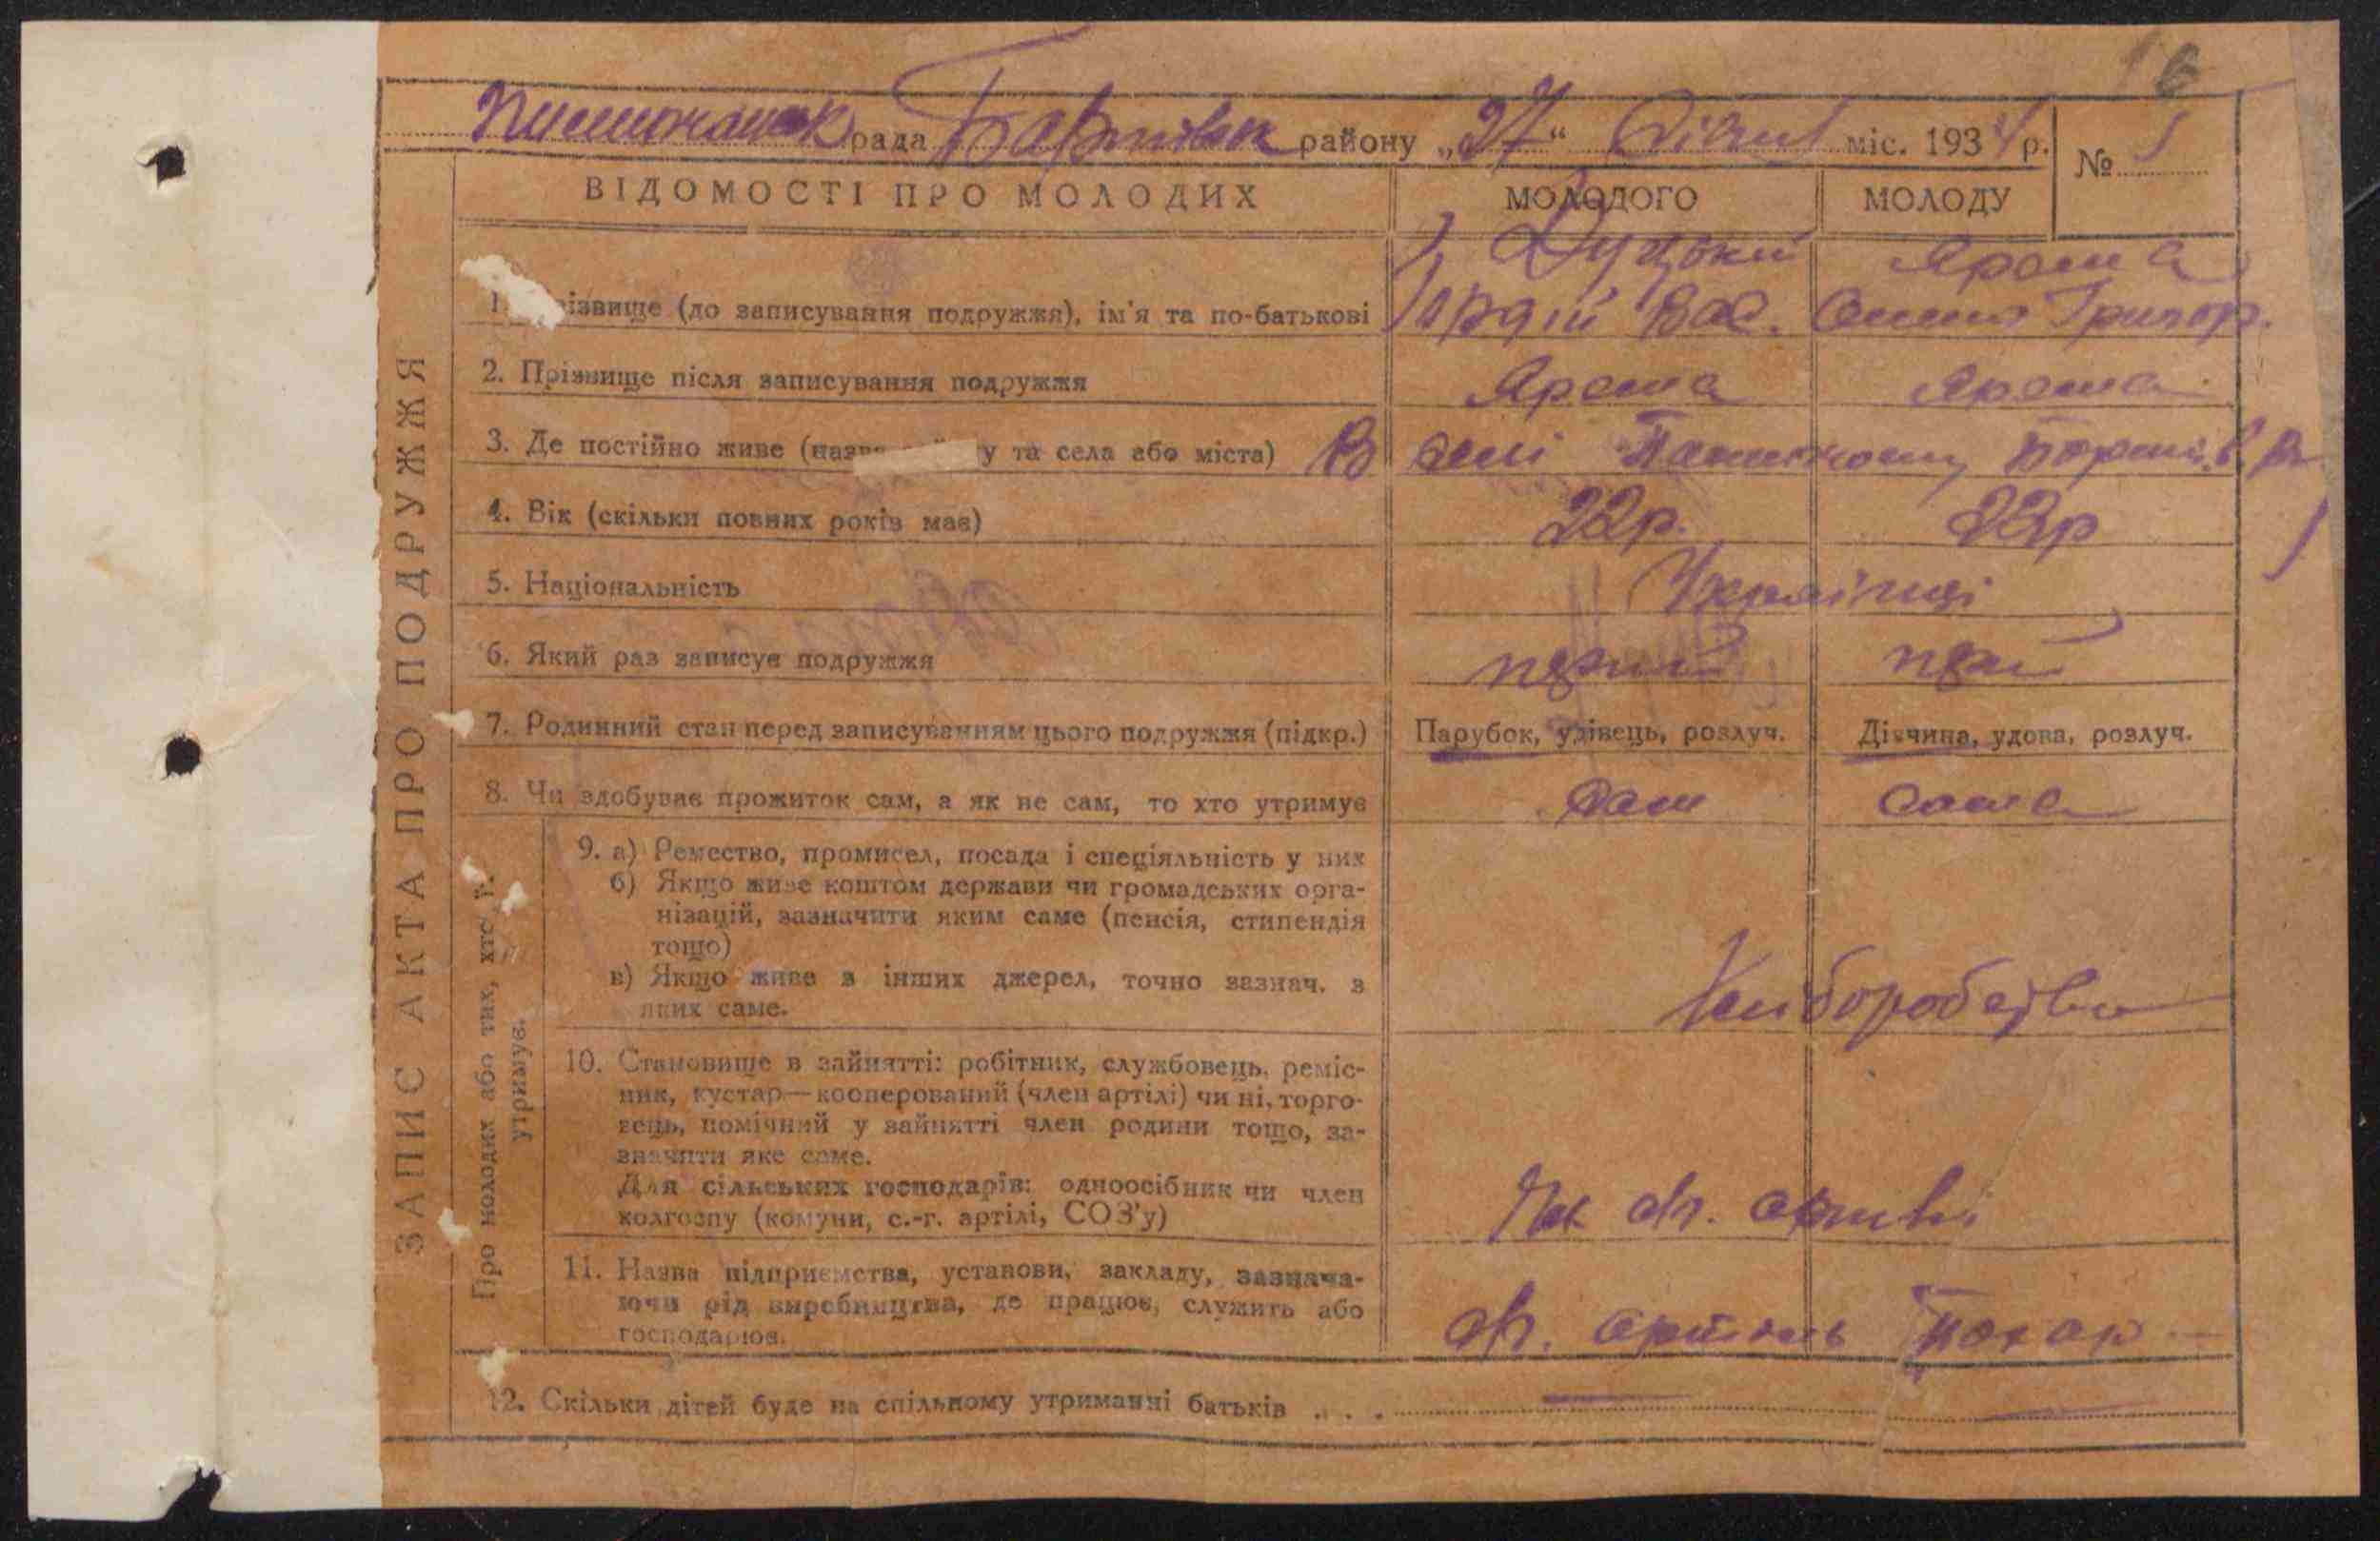 рада району „27“ Січня міс. 1934 р. № 1
ВІДОМОСТІ ПРО МОЛОДИХ МОЛОДОГО МОЛОДУ
Яроша
1. ізвище (до записування подружжя), ім'я та по-батькові Гордій Вас. Григор.
2. Прізвище після записування подружжя Яроша Яроша
3. Де постійно живе (назва у та села або міста) В селі
4. Вік (скільки повних років має) 22р. 22р
5. Національність Українці
6. Який раз записує подружжя
7. Родинний стан перед записуванням цього подружжя (підкр.) Парубок, удівець, розлуч. Дівчина, удова, розлуч.
8. Чи здобуває прожиток сам, а як не сам, то хто утримує Сам Сама
9. а) Ремество, промисел, посада і спеціяльність у них
б) Якщо живе коштом держави чи громадських орга-
нізацій, зазначити яким саме (пенсія, стипендія
тощо)
в) Якщо живе з інших джерел, точно зазнач. з
яких саме.
10. Становище в зайнятті: робітник, службовець, реміс-
ник, кустар—кооперований (член артілі) чи ні, торго-
вець, помічний у зайнятті член родини тощо, за-
значити яке саме.
Для сільських господарів: одноосібник чи член
колгоспу (комуни, с.-г. артілі, СОЗ'у)
11. Назва підприємства, установи, закладу, зазнача-
ючи рід виробництва, де працює, служить або
господарює. артіль
12. Скільки дітей буде на спільному утриманні батьків . . . — —
ЗАПИС АКТА ПРО ПОДРУЖЖЯ
Про молодих або тих, хто їх
утримує.